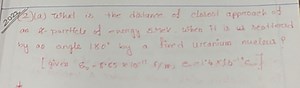 2022
2)(a) What is the distance of closest approach of
an α-particle of energy 5 MeV when it is scattered
by an angle 180° by a fixed uranium nucleus?
[given ε₀ = 8.85 × 10⁻¹² F/m,